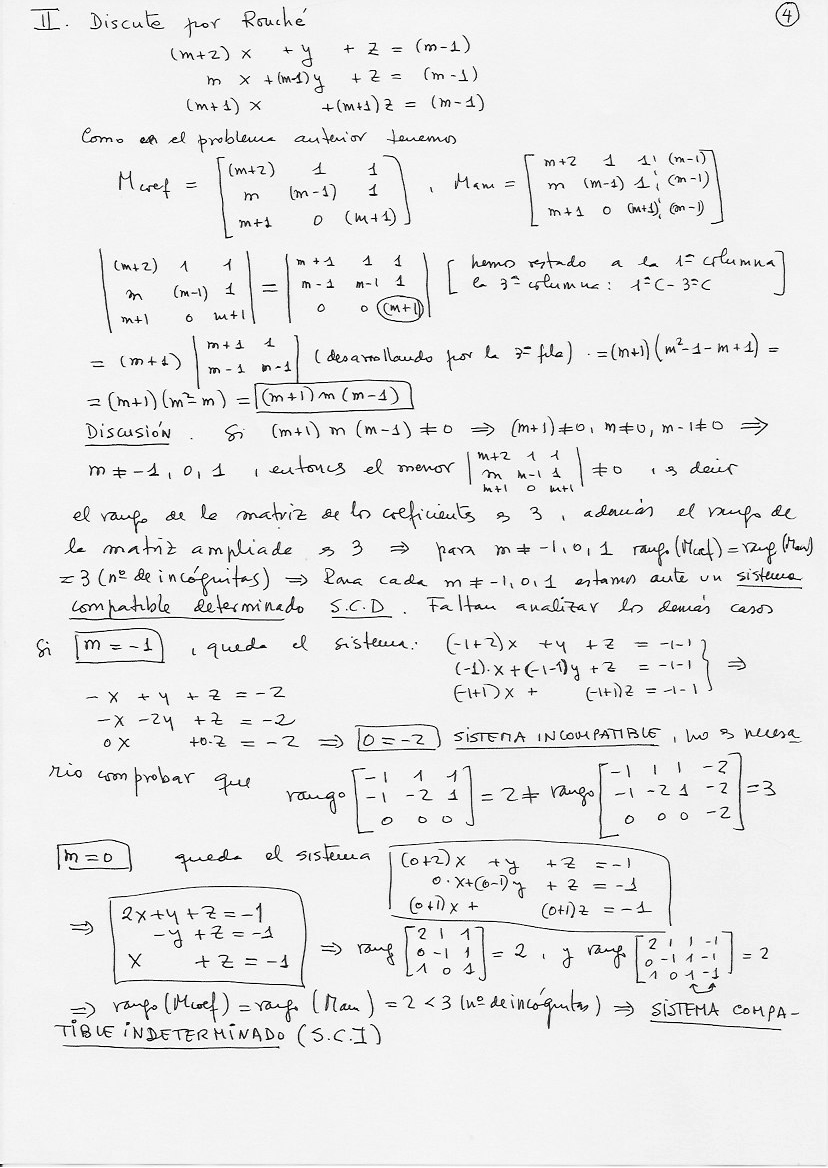 II. Discute por Rouché ④
(m+2) x + y + z = (m-1)
m x + (m-1) y + z = (m-1)
(m+1) x + (m+1) z = (m-1)
Como en el problema anterior tenemos
Mcoef = [(m+2) 1 1; m (m-1) 1; m+1 0 (m+1)] , Mam = [m+2 1 1 ¦ (m-1); m (m-1) 1 ¦ (m-1); m+1 0 (m+1) ¦ (m-1)]
|(m+2) 1 1; m (m-1) 1; m+1 0 m+1| = |m+1 1 1; m-1 m-1 1; 0 0 (m+1)| [hemos restado a la 1ª columna
la 3ª columna: 1ªC - 3ªC]
= (m+1) |m+1 1; m-1 m-1| (desarrollando por la 3ª fila) . = (m+1)(m²-1-m+1) =
= (m+1)(m²-m) = (m+1) m (m-1)
Discusión. Si (m+1) m (m-1) ≠ 0 ⇒ (m+1)≠0, m≠0, m-1≠0 ⇒
m ≠ -1, 0, 1 , entonces el menor |m+2 1 1; m m-1 1; m+1 0 m+1| ≠ 0 , es decir
el rango de la matriz de los coeficientes es 3, además el rango de
la matriz ampliada es 3 ⇒ para m ≠ -1, 0, 1 rango(Mcoef) = rang(Mam)
= 3 (nº de incógnitas) ⇒ Para cada m ≠ -1, 0, 1 estamos ante un sistema
compatible determinado S.C.D. Faltan analizar los demás casos
Si m = -1 , queda el sistema: (-1+2)x + y + z = -1-1
(-1)·x + (-1-1)y + z = -1-1
(-1+1)x + (-1+1)z = -1-1 } ⇒
- x + y + z = -2
-x -2y + z = -2
0x +0·z = -2 ⇒ 0 = -2 SISTEMA INCOMPATIBLE, no es necesa
rio comprobar que rango [-1 1 1; -1 -2 1; 0 0 0] = 2 ≠ rango [-1 1 1 -2; -1 -2 1 -2; 0 0 0 -2] = 3
m = 0 queda el sistema (0+2)x + y + z = -1
0·x+(0-1)y + z = -1
(0+1)x + (0+1)z = -1
⇒ 2x+y+z = -1
-y+z = -1
x + z = -1 ⇒ rang [2 1 1; 0 -1 1; 1 0 1] = 2 , y rang [2 1 1 -1; 0 -1 1 -1; 1 0 1 -1] = 2
⇒ rango(Mcoef) = rango(Mam) = 2 < 3 (nº de incógnitas) ⇒ SISTEMA COMPA-
TIBLE INDETERMINADO (S.C.I)